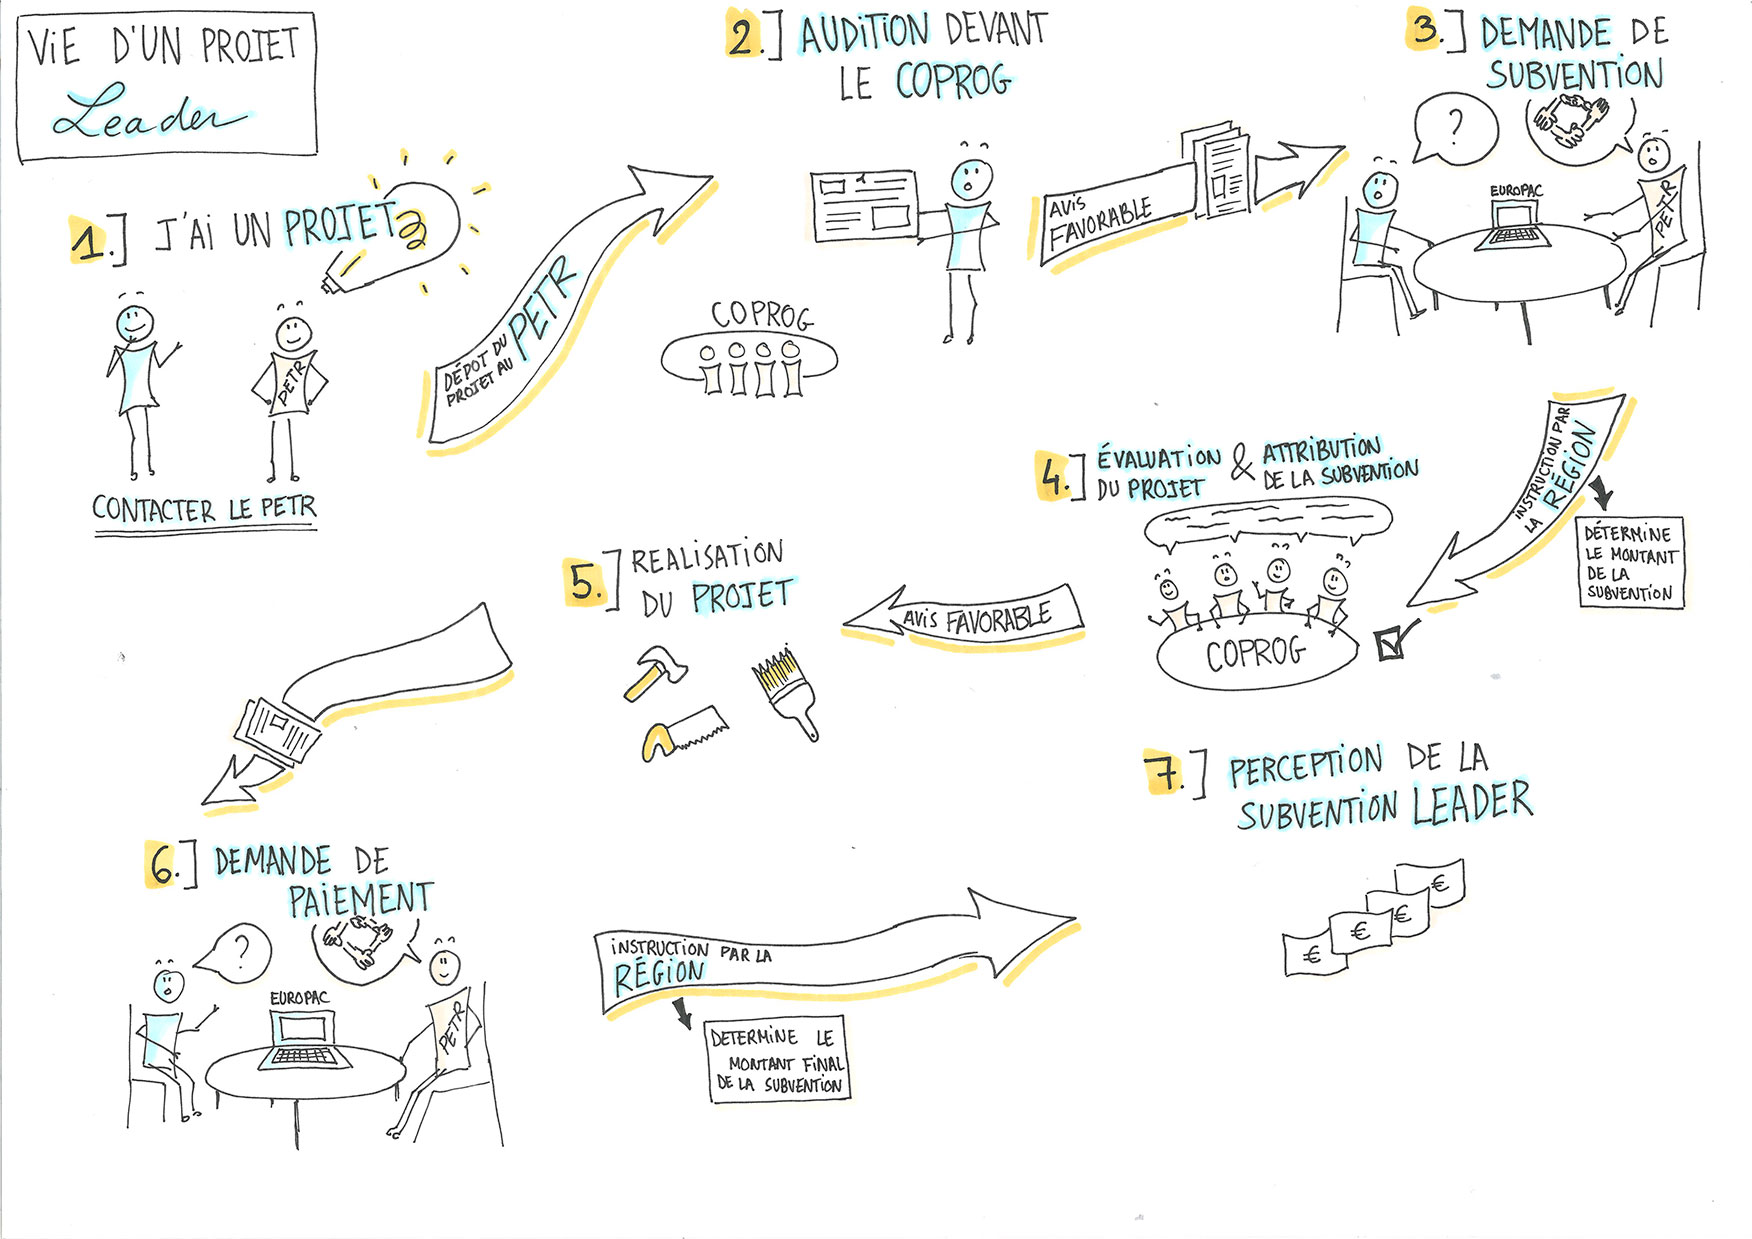 ViE D'UN PROJET
Leader
1.] J'Ai UN PROJET
PETR
CONTACTER LE PETR
DÉPOT DU
PROJET AU
PETR
2.] AUDITION DEVANT
LE COPROG
COPROG
AVIS
FAVORABLE
3.] DEMANDE DE
SUBVENTION
?
EUROPAC
PETR
INSTRUCTION PAR
LA RÉGION
DÉTERMINE
LE MONTANT
DE LA
SUBVENTION
4.] ÉVALUATION & ATTRIBUTION
DU PROJET DE LA SUBVENTION
COPROG
AVIS FAVORABLE
5.] REALISATION
DU PROJET
6.] DEMANDE DE
PAIEMENT
?
EUROPAC
PETR
INSTRUCTION PAR LA
RÉGION
DETERMINE LE
MONTANT FINAL
DE LA SUBVENTION
7.] PERCEPTION DE LA
SUBVENTION LEADER
€
€
€
€